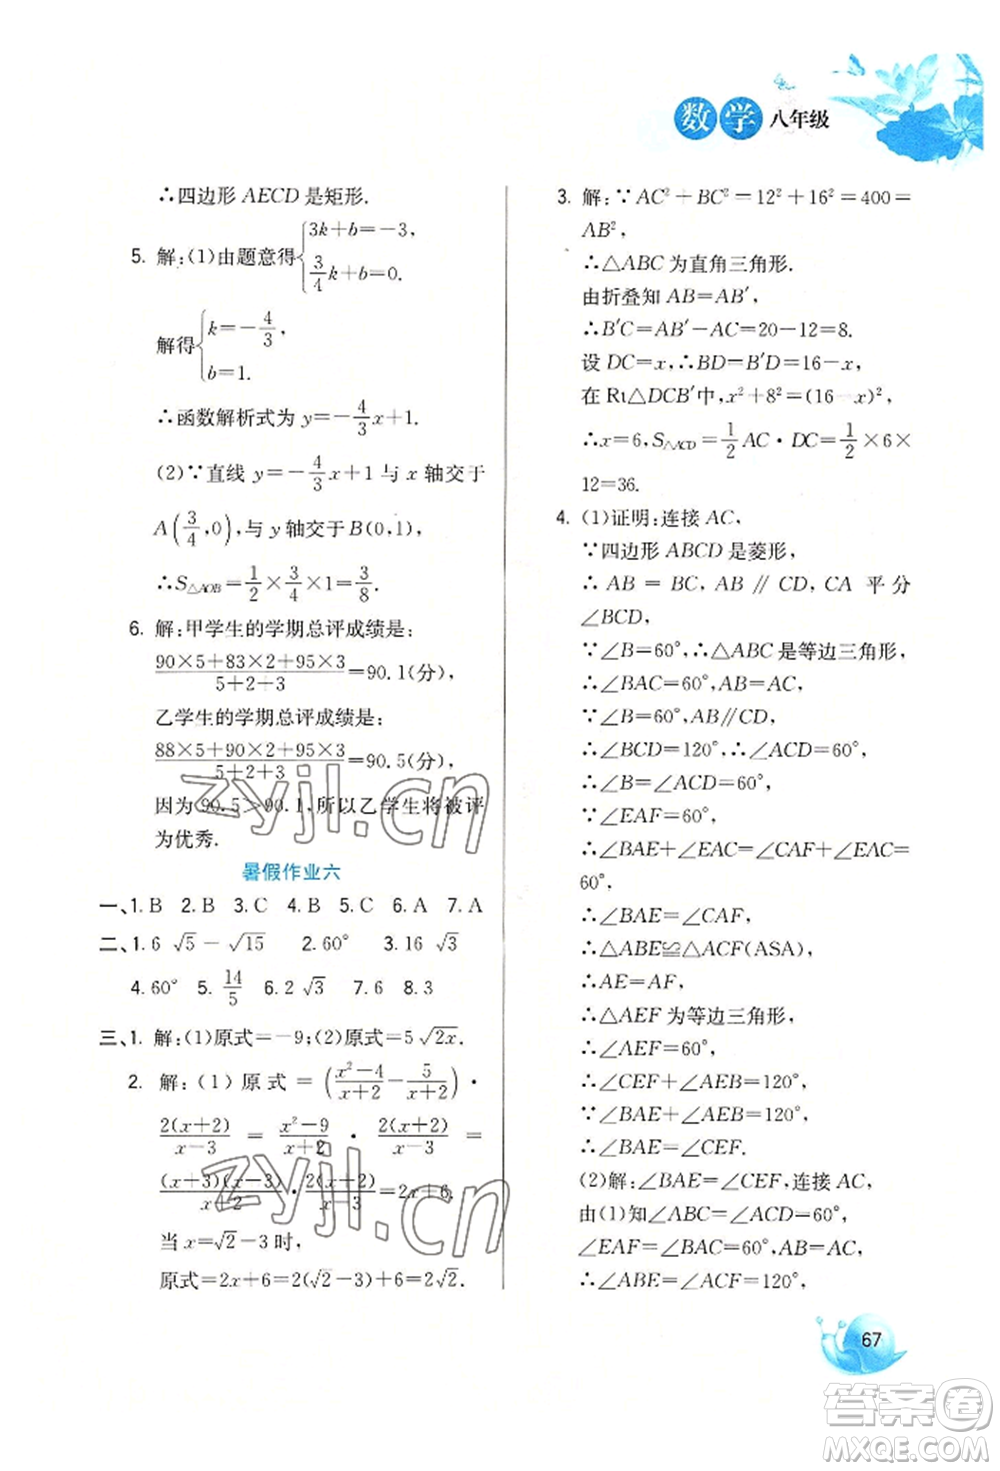 数学 八年级
∴四边形 AECD 是矩形.
5. 解:(1)由题意得{3k+b=-3,
3/4k+b=0.
解得{k=-4/3,
b=1.
∴函数解析式为 y=-4/3x+1.
(2)∵直线 y=-4/3x+1 与 x 轴交于
A(3/4,0),与 y 轴交于 B(0,1),
∴S△AOB=1/2×3/4×1=3/8.
6. 解:甲学生的学期总评成绩是:
(90×5+83×2+95×3)/(5+2+3)=90.1(分),
乙学生的学期总评成绩是:
(88×5+90×2+95×3)/(5+2+3)=90.5(分)
因为 90.5>90.1,所以乙学生将被评
为优秀.
暑假作业六
一、1. B 2. B 3. C 4. B 5. C 6. A 7. A
二、1. 6√5-√15 2. 60° 3. 16√3
4. 60° 5. 14/5 6. 2√3 7. 6 8. 3
三、1. 解:(1)原式=-9;(2)原式=5√2x.
2. 解:(1)原式=((x²-4)/(x+2)-5/(x+2))·
2(x+2)/(x-3)=(x²-9)/(x+2)·2(x+2)/(x-3)=
(x+3)(x-3)/(x+2)·2(x+2)/(x-3)=2x+6,
当 x=√2-3 时,
原式=2x+6=2(√2-3)+6=2√2.
3. 解:∵AC²+BC²=12²+16²=400=
AB²,
∴△ABC 为直角三角形.
由折叠知 AB=AB′,
∴B′C=AB′-AC=20-12=8.
设 DC=x,∴BD=B′D=16-x,
在 Rt△DCB′中,x²+8²=(16-x)²,
∴x=6,S△ACD=1/2AC·DC=1/2×6×
12=36.
4. (1)证明:连接 AC,
∵四边形 ABCD 是菱形,
∴AB=BC,AB∥CD,CA 平分
∠BCD,
∵∠B=60°,∴△ABC 是等边三角形,
∴∠BAC=60°,AB=AC,
∵∠B=60°,AB∥CD,
∴∠BCD=120°,∴∠ACD=60°,
∴∠B=∠ACD=60°,
∵∠EAF=60°,
∴∠BAE+∠EAC=∠EAC+∠CAF=
60°,
∴∠BAE=∠CAF,
∴△ABE≌△ACF(ASA),
∴AE=AF,
∴△AEF 为等边三角形,
∴∠AEF=60°,
∴∠AEB+∠CEF=120°,
∵∠BAE+∠AEB=120°,
∴∠BAE=∠CEF.
(2)解:∠BAE=∠CEF,连接 AC,
由(1)知∠ABC=∠ACD=60°,
∠EAF=∠BAC=60°,AB=AC,
∴∠ABE=∠ACF=120°,
67
zyjl.cn
zyjl.cn
答案卷
MXQE.COM